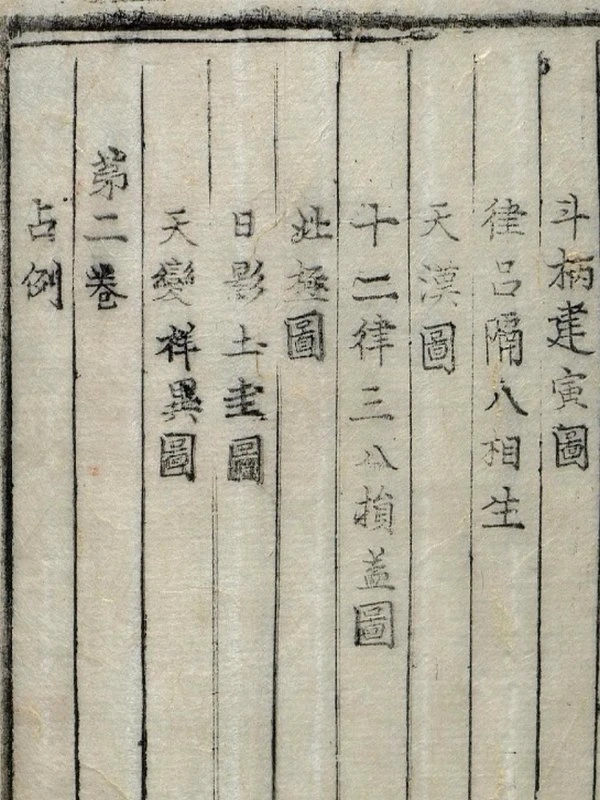 斗柄建寅圖
律呂隔八相生
天漢圖
十二律三分損益圖
北極圖
日影土圭圖
天變祥異圖
苐二卷
占例